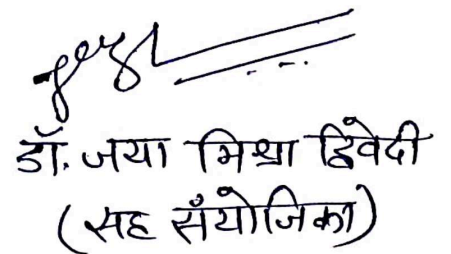 डॉ. जया मिश्रा द्विवेदी
(सह संयोजिका)